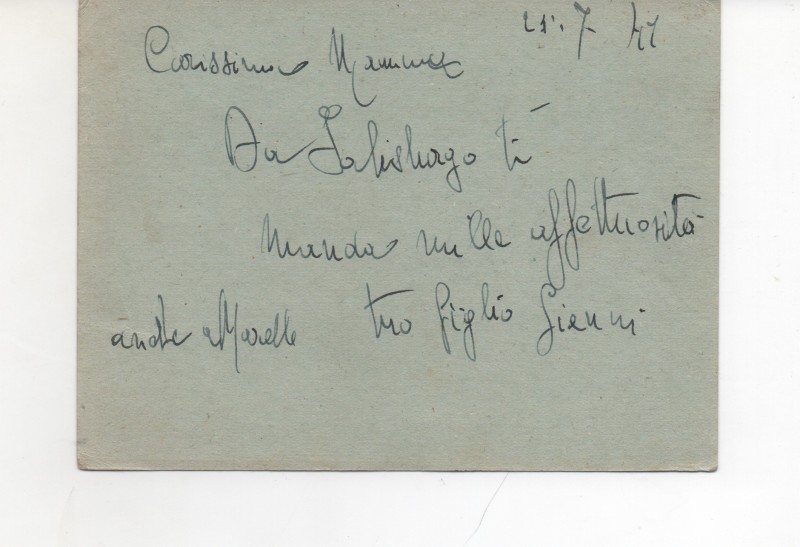 21. 7 41
Carissima Mamma
Da Salisburgo ti
manda mille affettuosità
tuo figlio Gianni
anche a